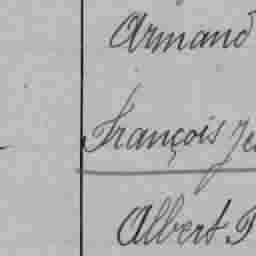 Armand
François Je
Albert P